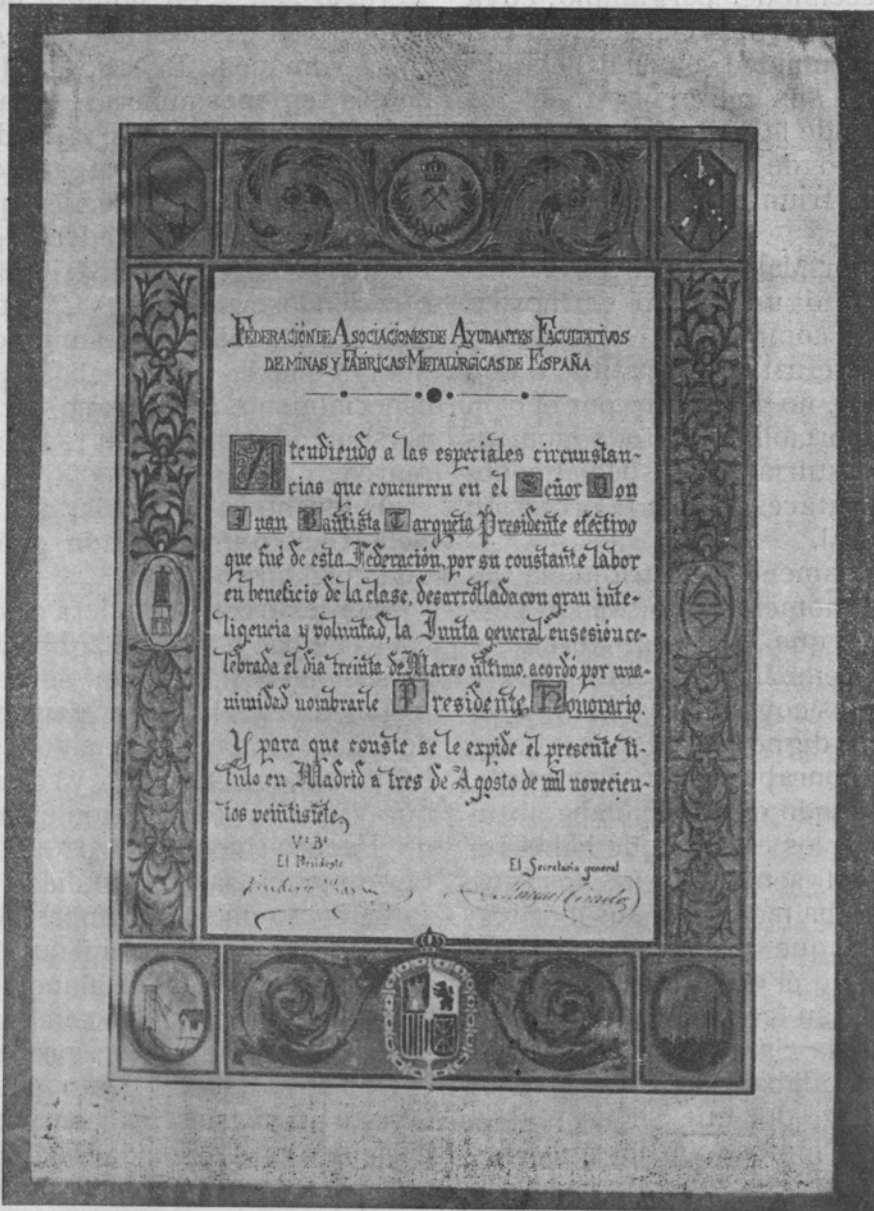 FEDERACIÓN DE ASOCIACIONES DE AYUDANTES FACULTATIVOS
DE MINAS Y FÁBRICAS METALÚRGICAS DE ESPAÑA
Atendiendo a las especiales circunstan-
cias que concurren en el Señor Don
Juan Bautista Targueta Presidente efectivo
que fué de esta Federación, por su constante labor
en beneficio de la clase, desarrollada con gran inte-
ligencia y voluntad, la Junta general en sesión ce-
lebrada el dia treinta de Marzo último, acordó por una-
nimidad nombrarle Presidente Honorario.
Y para que conste se le expide el presente tí-
tulo en Madrid a tres de Agosto de mil novecien-
tos veintisiete,
Vº Bº
El Presidente
El Secretario general